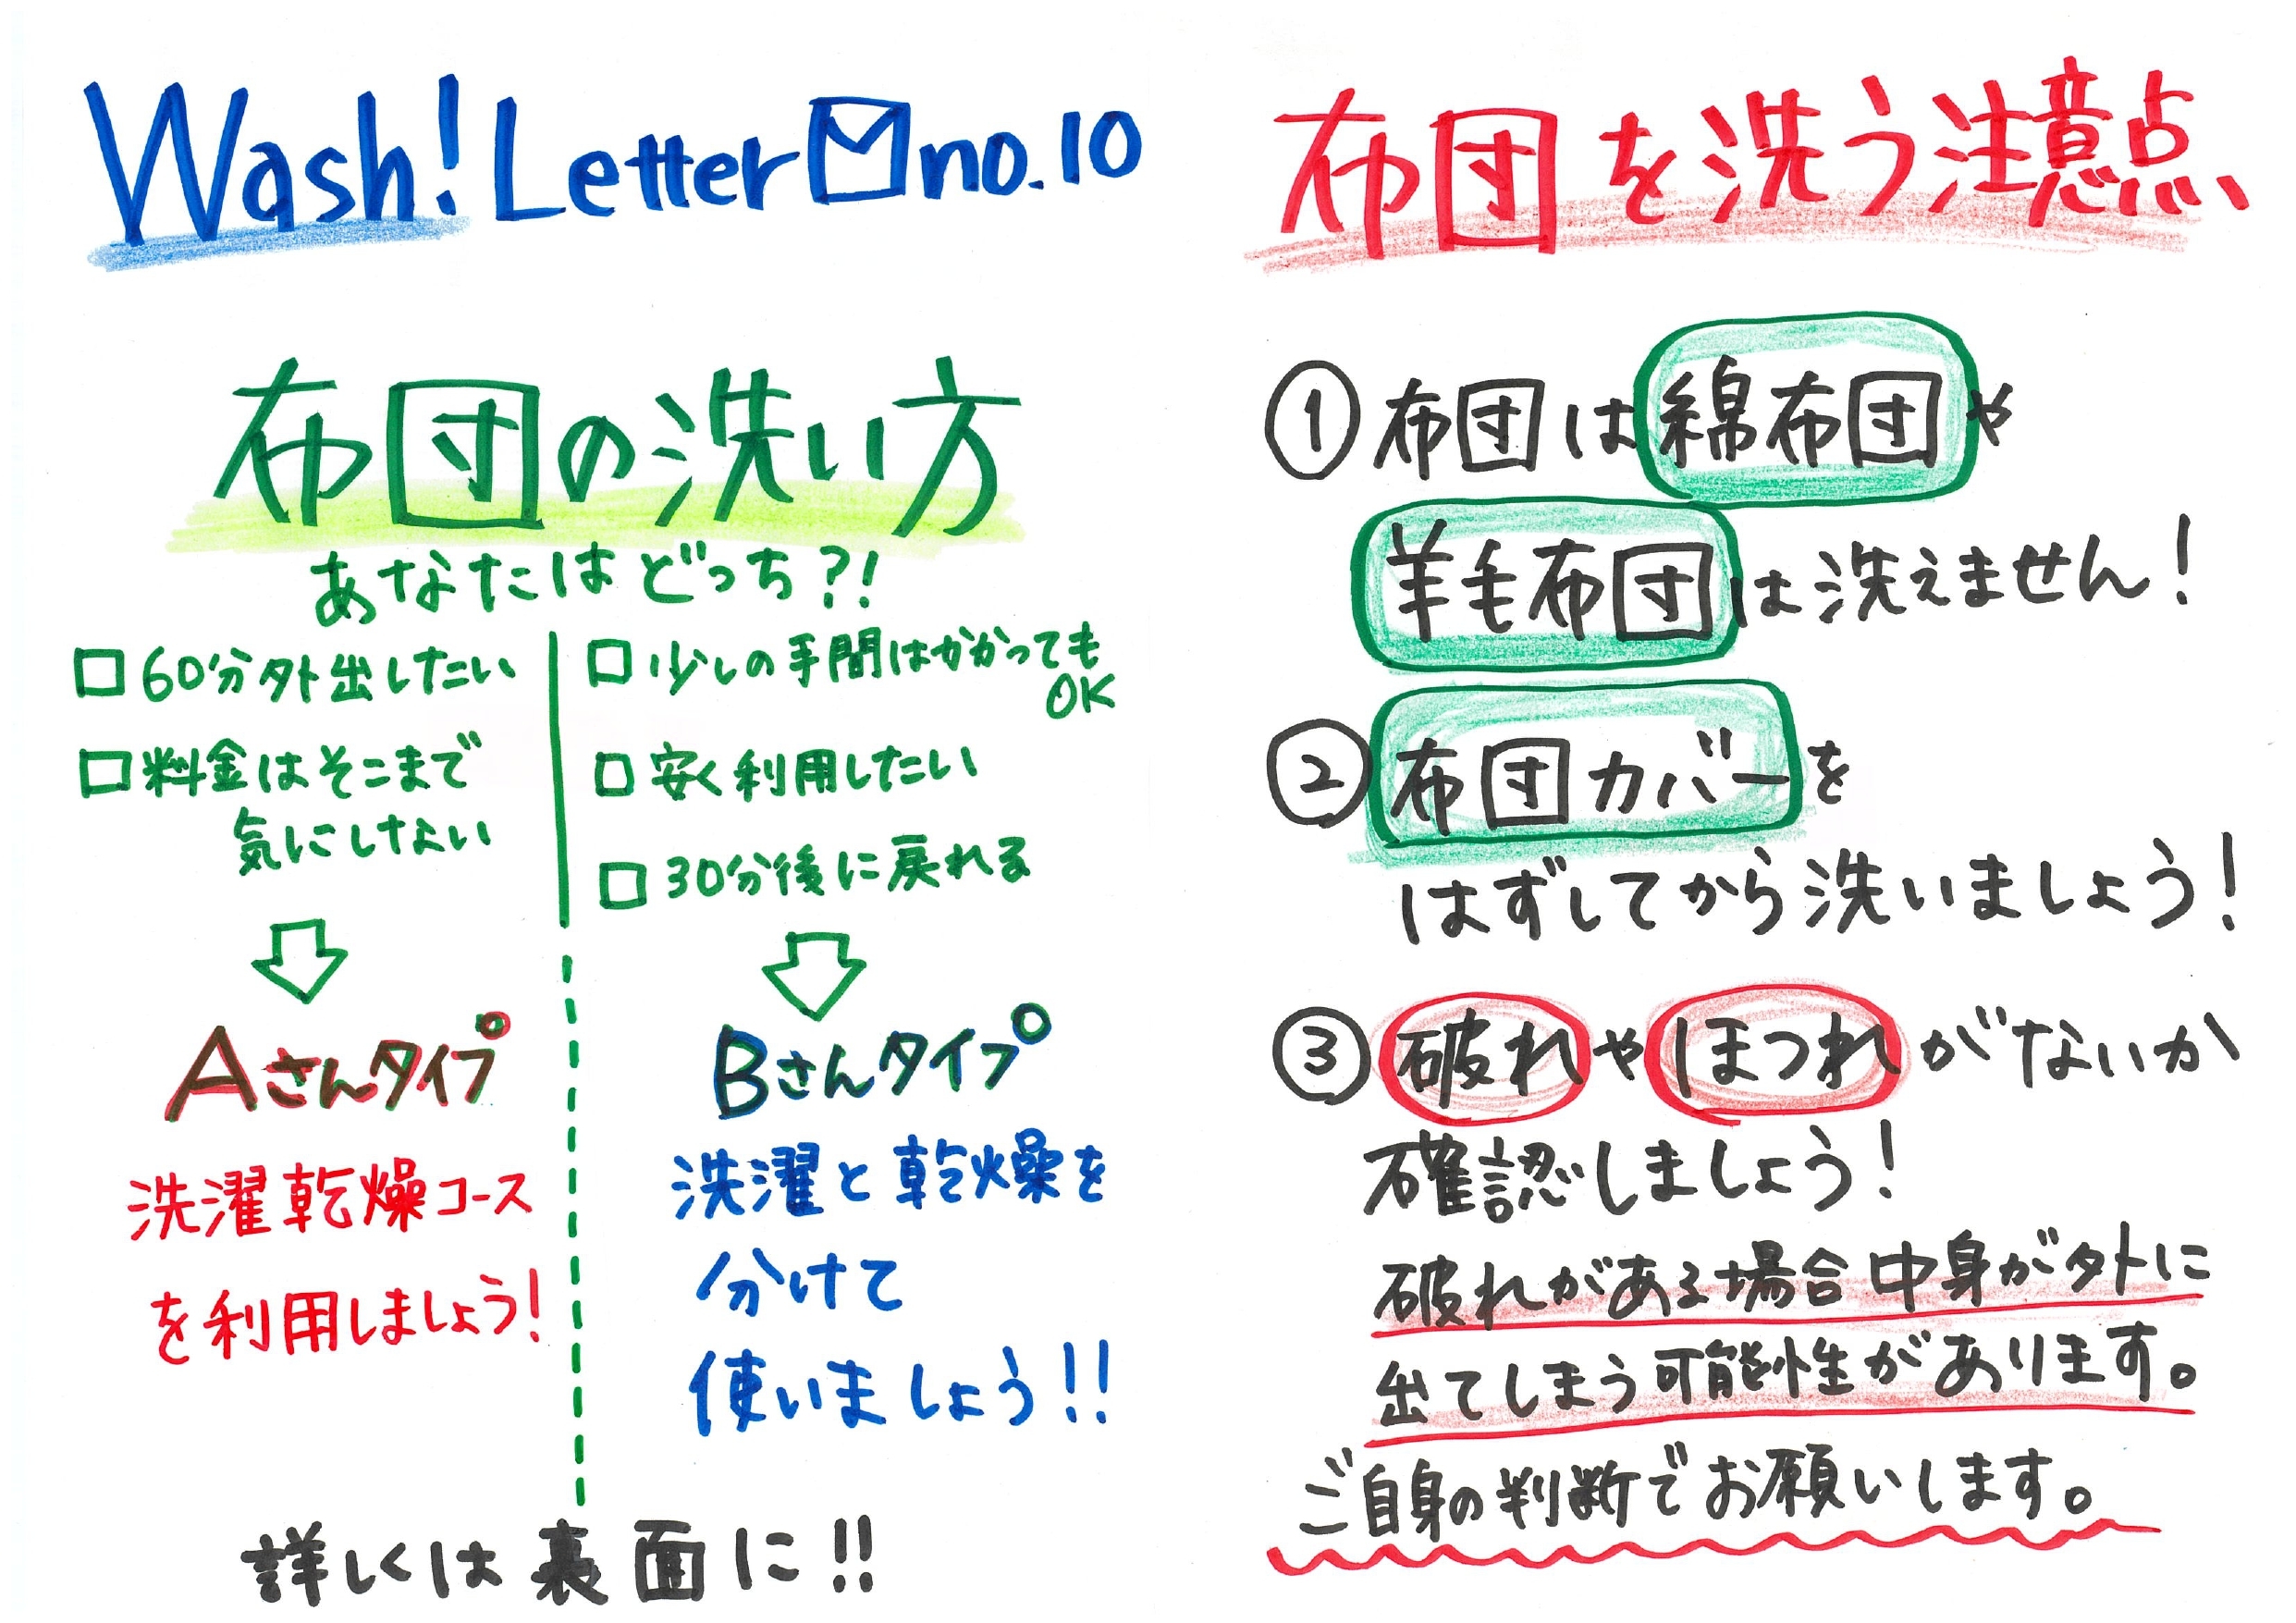 Wash! Letter no.10
布団の洗い方
あなたはどっち?!
□60分外出したい
□料金はそこまで
気にしない
Aさんタイプ
洗濯乾燥コース
を利用しましょう!
□少しの手間はかかっても
OK
□安く利用したい
□30分後に戻れる
Bさんタイプ
洗濯と乾燥を
分けて
使いましょう!!
詳しくは裏面に!!
布団を洗う注意点、
①布団は綿布団や
羊毛布団は洗えません!
②布団カバーを
はずしてから洗いましょう!
③破れやほつれがないか
確認しましょう!
破れがある場合中身が外に
出てしまう可能性があります。
ご自身の判断でお願いします。